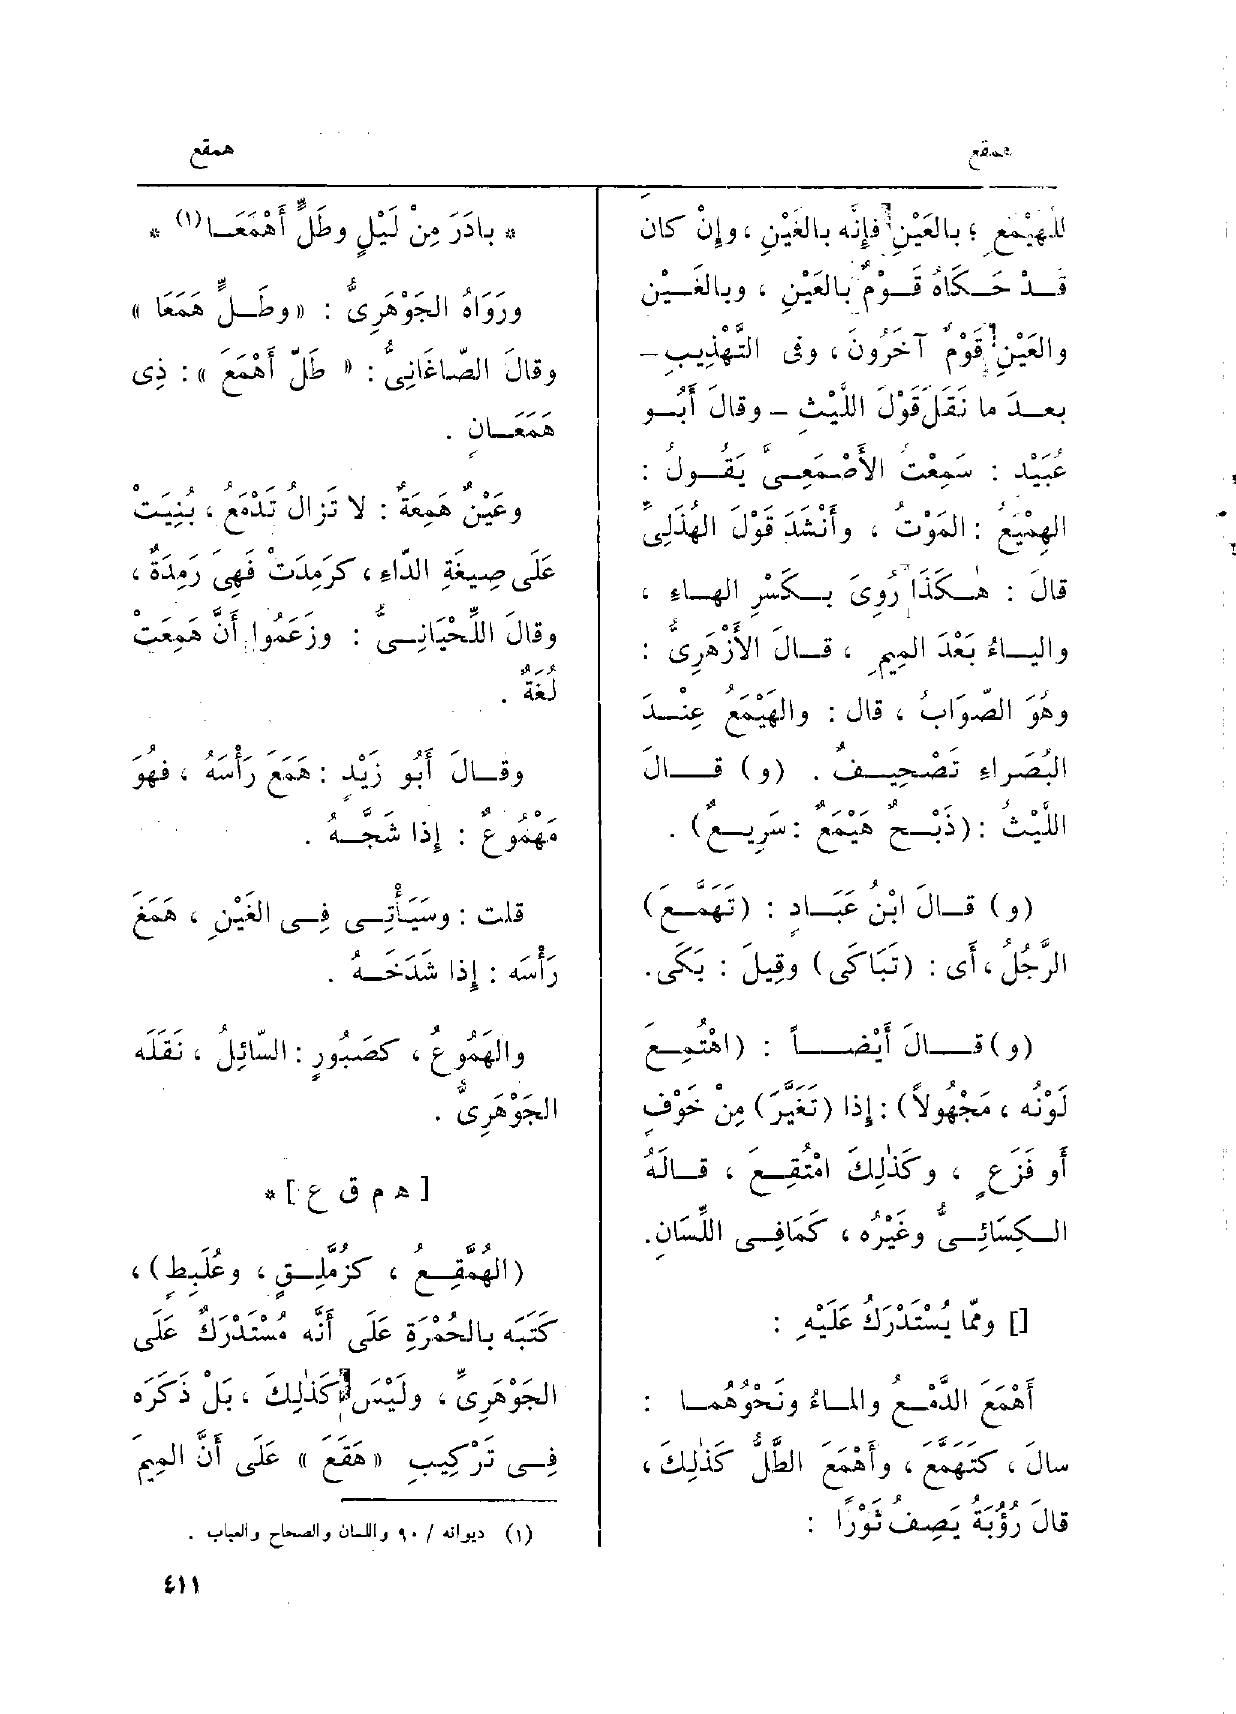 همقع
همقع
للْهِيْمَعِ ؛ بالعَيْنِ فإِنَّه بالغَيْنِ ، وإِنْ كانَ
قَــدْ حَــكَاهُ قَــوْمٌ بالعَيْنِ ، وبالغَــيْنِ
والعَيْنِ قَوْمٌ آخَرُونَ ، وفى التَّهْذِيبِــ
بعــدَ ما نَقَلَ قَوْلَ اللَّيْثِ - وقالَ أَبُــو
عُبَيْد : سَمِعْتُ الأَصْمَعِــىَّ يَقُــولُ :
الهِمْيَعُ : المَوْتُ ، وأَنْشَدَ قَوْلَ الهُذَلِىِّ
قالَ : هٰــكَذَا رُوِىَ بِــكَسْرِ الهــاءِ ،
واليــاءُ بَعْدَ المِيمِ ، قــالَ الأَزْهَرِىُّ :
وهُوَ الصَّوَابُ ، قال : والهَيْمَعُ عِنْــدَ
البُصَراءِ تَصْحِيــفٌ . (و) قــالَ
اللَّيْثُ : (ذَبْــحٌ هَيْمَعٌ : سَرِيــعٌ) .
(و) قــالَ ابْنُ عَبّــادٍ : (تَهَمَّــعَ)
الرَّجُلُ ، أَى : (تَبَاكَى) وقِيلَ : بَكَى .
(و) قــالَ أَيْضــاً : (اهْتُمِــعَ
لَوْنُه ، مَجْهُولاً) : إِذا (تَغَيَّرَ) مِنْ خَوْفٍ
أو فَزَعٍ ، وكَذٰلِكَ امْتُقِــعَ ، قــالَهُ
الــكِسَائِــىُّ وغَيْرُه ، كمَافِــى اللِّسَانِ .
[] ومّما يُسْتَدْرَكُ عَلَيْهِ :
أَهْمَعَ الدَّمْــعُ والمــاءُ ونَحْوُهُمــا :
سالَ ، كتَهَمَّعَ ، وأَهْمَعَ الطَّلُّ كَذٰلِكَ ،
قالَ رُؤْبَةُ يَصِفُ ثَوْرًا :
* بادَرَ مِنْ لَيْلٍ وطَلٍّ أَهْمَعَــا(١) *
ورَوَاهُ الجَوْهَرِىُّ : «وطَــلٍّ هَمَعَا »
وقالَ الصّاغَانِىُّ : « طَلٌّ أَهْمَعُ » : ذِى
هَمَعَــانٍ .
وعَيْنٌ هَمِعَةٌ : لا تَزالُ تَدْمَعُ ، بُنِيَتْ
عَلَى صِيغَةِ الدّاءِ ، كرَمِدَتْ فَهِىَ رَمِدَةٌ ،
وقالَ اللِّحْيَانِــىُّ : وزَعَمُوا أَنَّ هَمِعَتْ
لُغَةٌ .
وقــالَ أَبُو زَيْدٍ : هَمَعَ رَأْسَهُ ، فهُوَ
مَهْمُوعٌ : إِذا شَجَّــهُ .
قلت : وسَيَأْتِــى فِــى الغَيْنِ ، هَمَغَ
رَأْسَه : إِذا شَدَخَــهُ .
والهَمُوعُ ، كصَبُورٍ : السّائِلُ ، نَقَلَه
الجَوْهَرِىُّ .
[ ه م ق ع ] *
(الهُمَّقِــعُ ، كزُمَّلِــقٍ ، وعُلَبِطٍ) ،
كَتَبَه بالحُمْرَةِ عَلَى أَنَّه مُسْتَدْرَكٌ عَلَى
الجَوْهَرِىِّ ، ولَيْسَ كَذٰلِكَ ، بَلْ ذَكَرَه
فِــى تَرْكِيبِ « هَقَعَ » عَلَى أَنَّ المِيمَ
(١) ديوانه / ٩٠ واللسان والصحاح والعباب .
٤١١